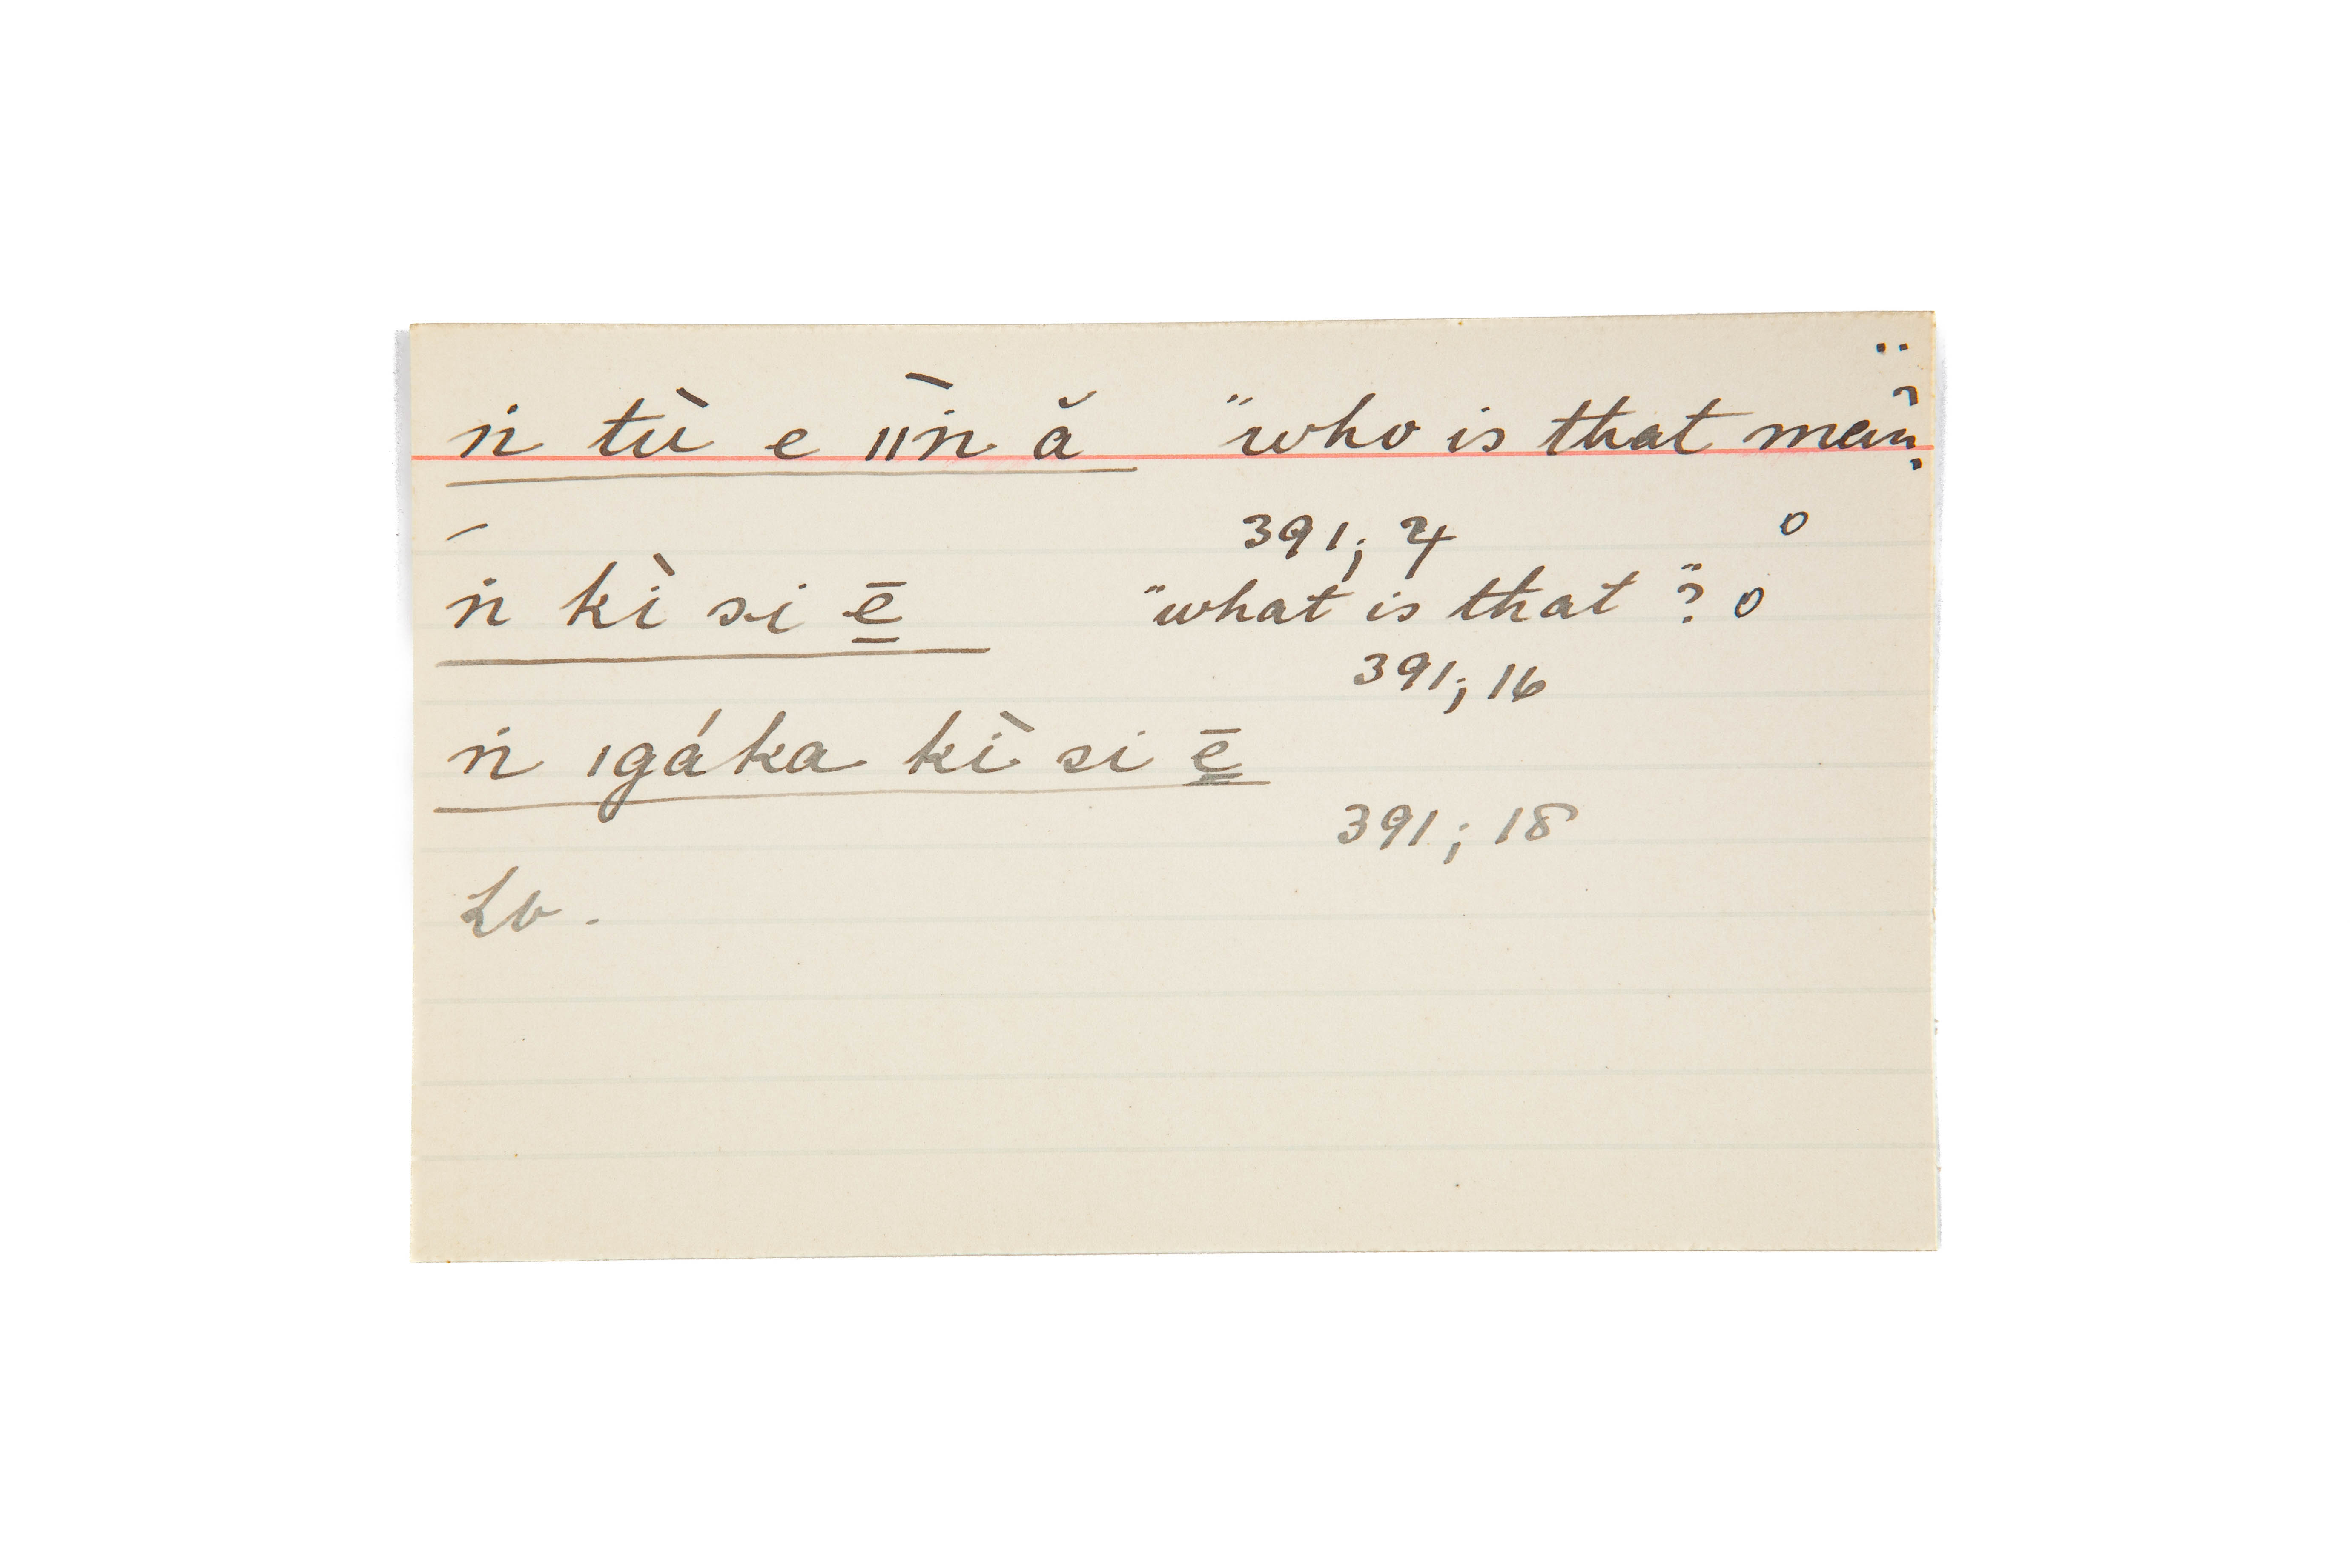 ṅ tù e ǁǹ ă "who is that man"?
391; 4 o
ṅ́ kì si ē̠ "what is that"? o
391; 16
ṅ ǀgáka kì si ē̠
391; 18
Lv.